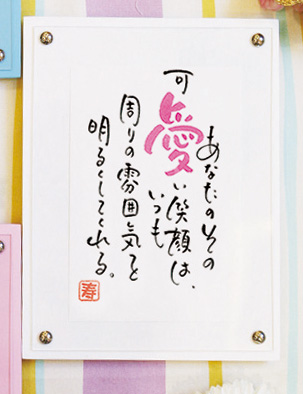 あなたのその
可愛い笑顔は、
いつも
周りの雰囲気を
明るくしてくれる。
寿